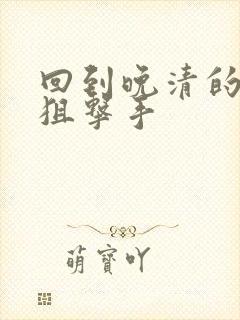 回到晚清的
狙撃手
萌寳吖